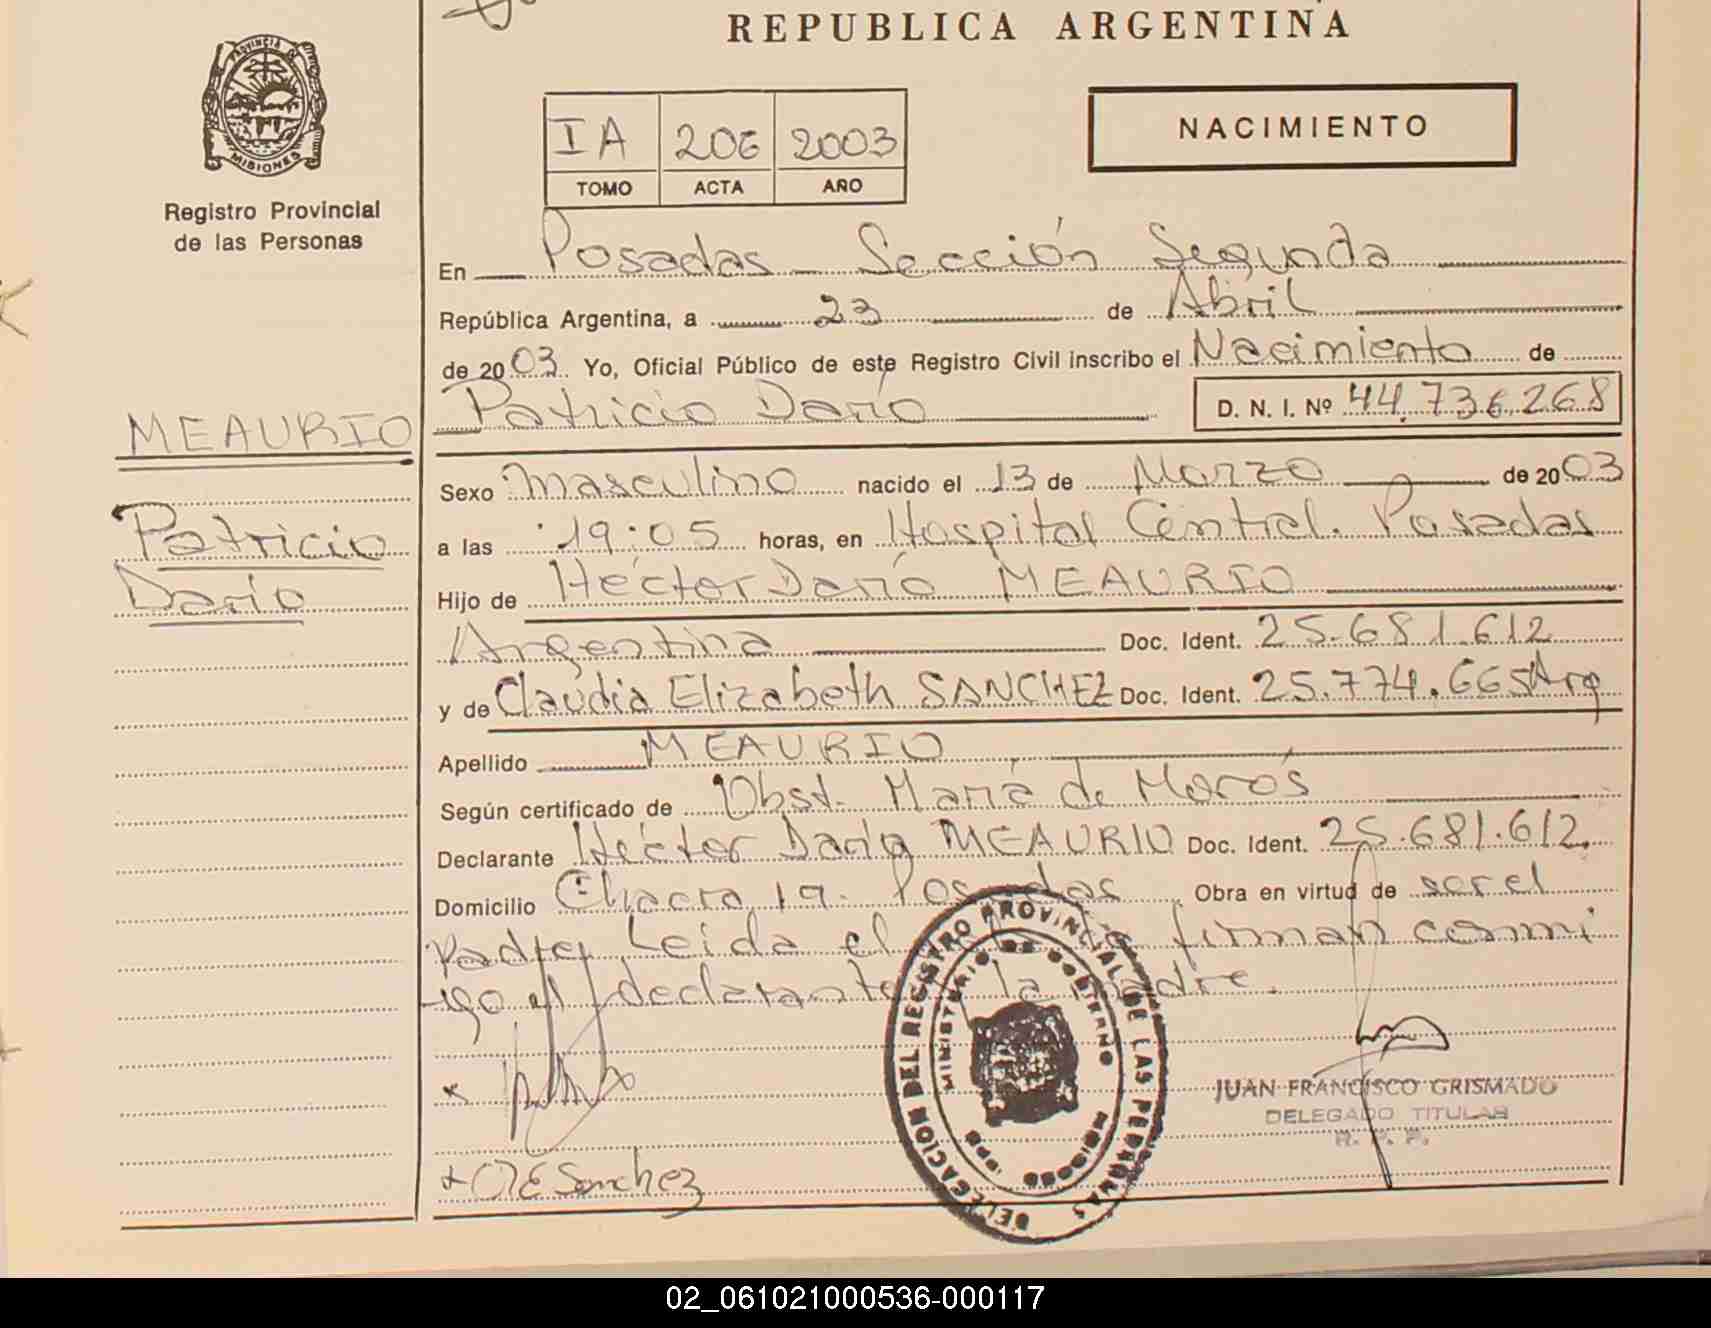 REPUBLICA ARGENTINA
PROVINCIA DE
MISIONES
Registro Provincial
de las Personas
IA 206 2003
TOMO ACTA AÑO
NACIMIENTO
En Posadas Sección Segunda
República Argentina, a 23 de Abril
de 2003 Yo, Oficial Público de este Registro Civil inscribo el Nacimiento de
Patricio Darío D. N. I. Nº 44.736.268
MEAURIO
Patricio
Darío
Sexo Masculino nacido el 13 de Marzo de 2003
a las 19:05 horas, en Hospital Central. Posadas
Hijo de Héctor Darío MEAURIO
Argentina Doc. Ident. 25.681.612
y de Claudia Elizabeth SANCHEZ Doc. Ident. 25.774.665 Arg
Apellido MEAURIO
Según certificado de Obst. María de Morós
Declarante Héctor Darío MEAURIO Doc. Ident. 25.681.612
Domicilio Chacra 19. Posadas Obra en virtud de ser el
Padre, Leida el firman conmi
-go el declarante la madre.
DELEGACION DEL REGISTRO PROVINCIAL DE LAS PERSONAS
MINISTERIO DE GOBIERNO
JUAN FRANCISCO GRISMADO
DELEGADO TITULAR
R. P. P.
Sanchez
02_061021000536-000117